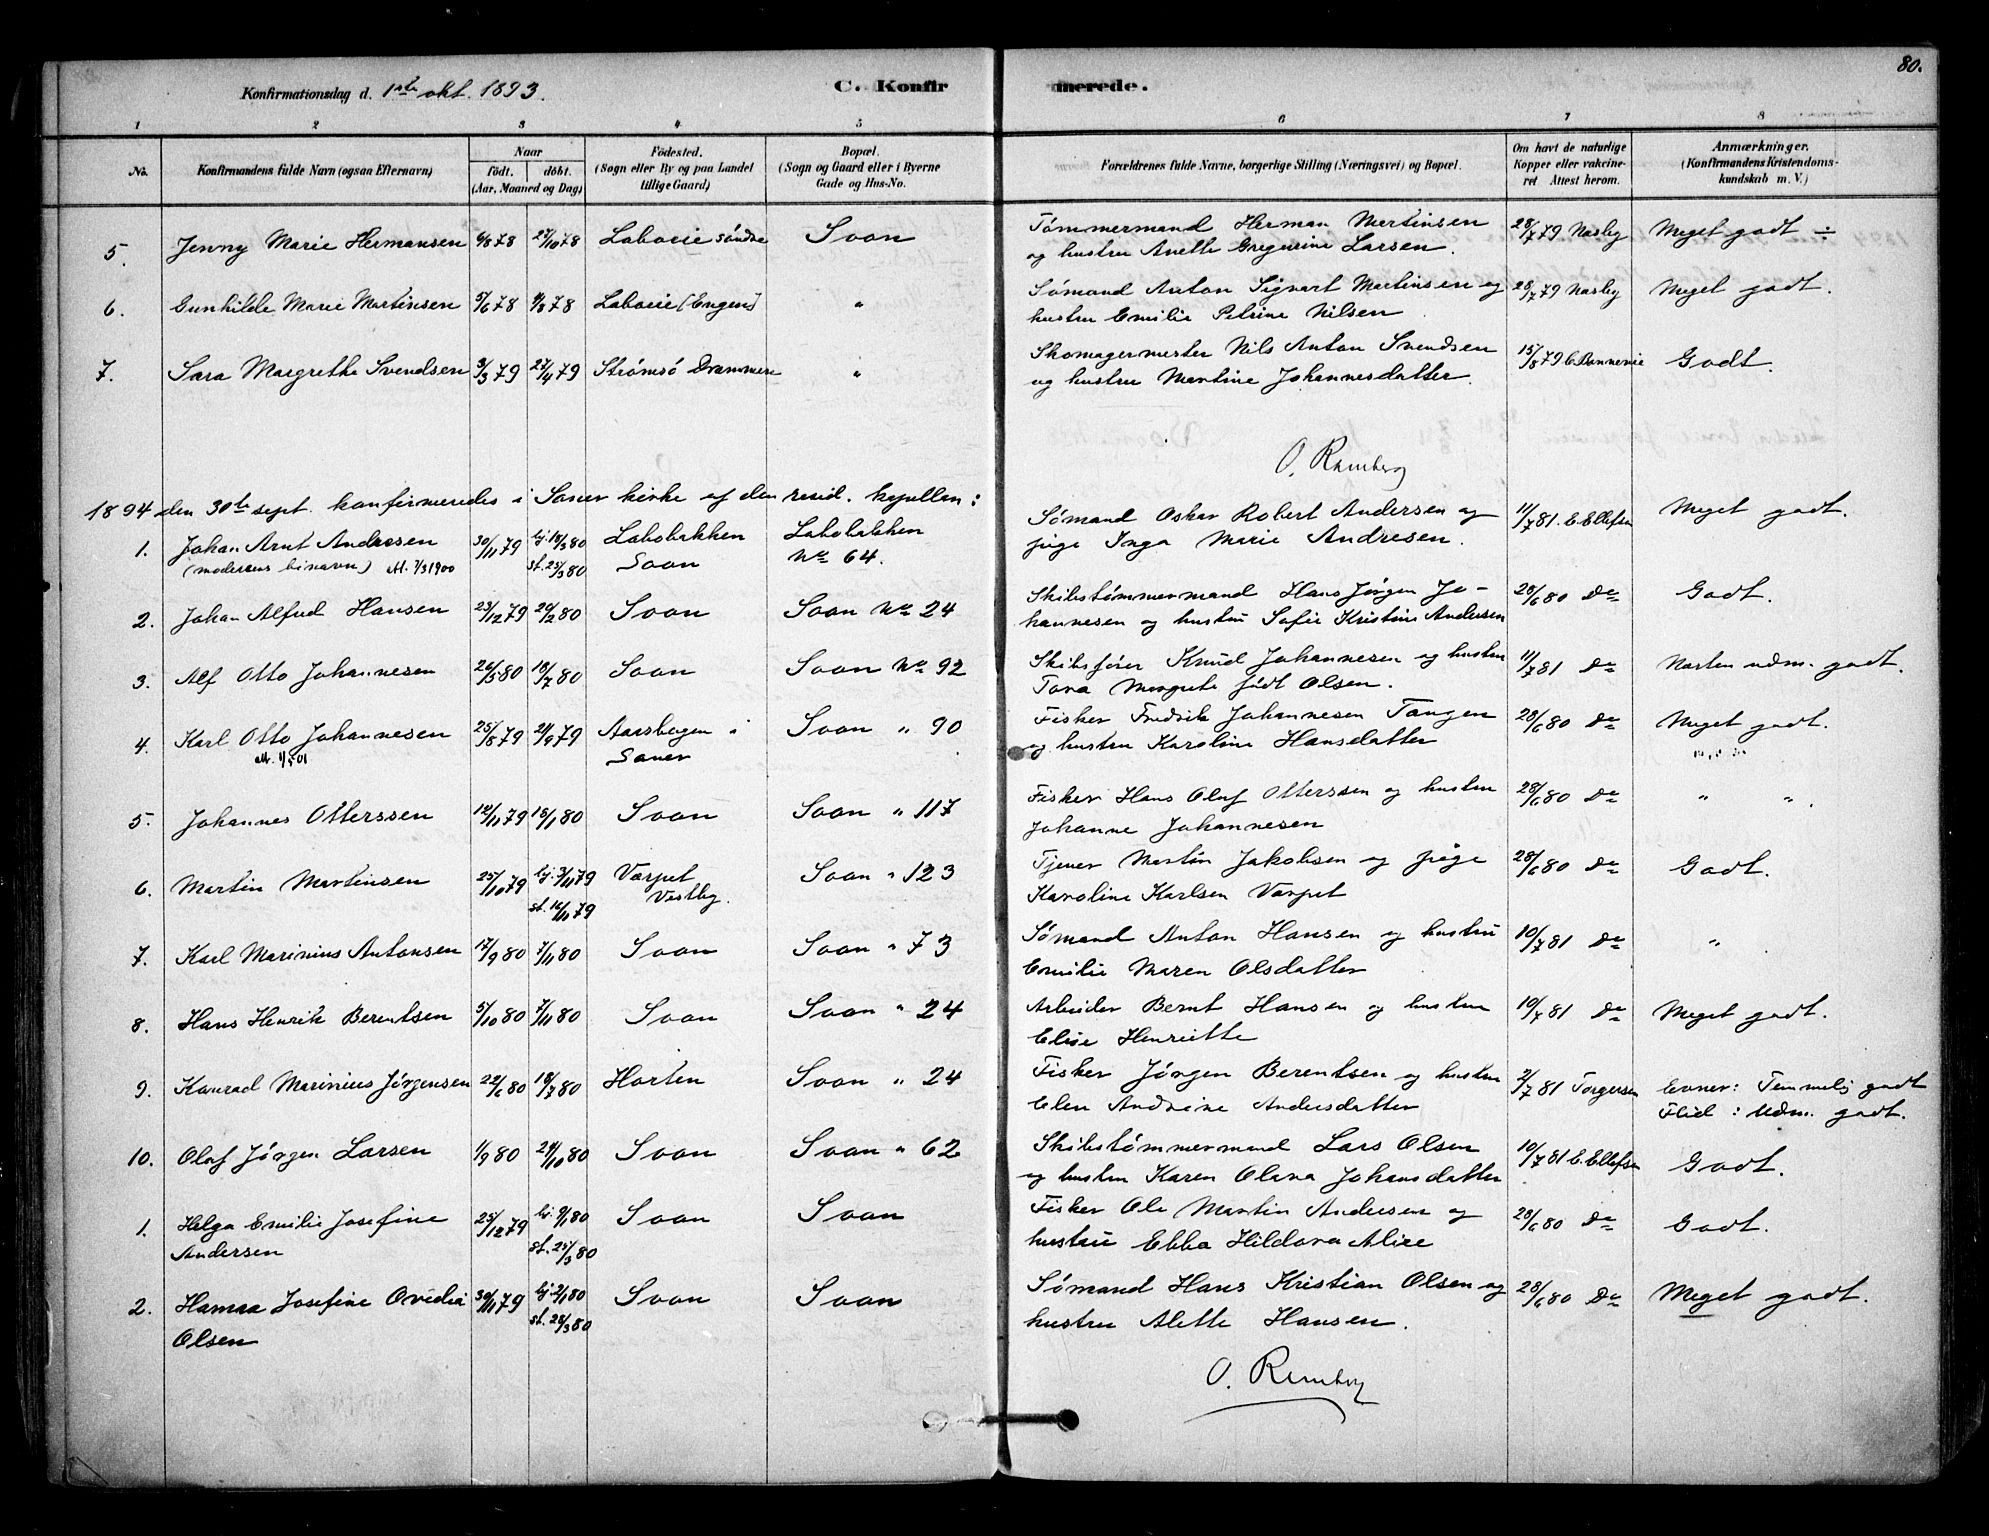 80.
Konfirmationsdag d. 1ste okt. 1893.
C. Konfirmerede.
1 2 3 4 5 6 7 8
No. Konfirmandens fulde Navn (ogsaa Efternavn) Naar født. døbt. (Aar, Maaned og Dag) Fødested. (Sogn eller By og paa Landet tillige Gaard) Bopæl. (Sogn og Gaard eller i Byerne Gade og Hus-No. Forældrenes fulde Navne, borgerlige Stilling (Næringsvei) og Bopæl. Om havt de naturlige Kopper eller vakcineret Attest herom. Anmærkninger. (Konfirmandens Kristendomskundskab m. V.)
5. Jenny Marie Hermansen 6/8 78 27/10 78 Laboeie søndre Soon Tømmermand Herman Martinsen 28/7 79 Nasby Meget godt ÷
og hustru Anette Gregorine Larsen.
6. Gunhilde Marie Martinsen 5/6 78 4/8 78 Laboeie [Engen] " Sømand Anton Sigvart Martinsen og 28/7 79 Nasby Meget godt.
hustru Emilie Petrine Nilsen
7. Sara Margrethe Svendsen 3/3 79 27/4 79 Strømsø Drammen " Skomagermester Nils Anton Svendsen 15/8 79 Godt.
og hustru Martine Johannesdatter.
O. Ramberg
1894 den 30te sept. konfirmeredes i Saner kirke af den resid. kapellan:
1. Johan Arnt Andresen 30/11 79 hj. 18/3 80 Labobakken Labobakken Sømand Oskar Robert Andersen og 11/7 81. E. Ellefsen Meget godt.
(moderens binavn) Att. 7/3 1900 st. 25/3 80 Soon No 64. pige Inga Marie Andresen.
2. Johan Alfred Hansen 23/12 79 29/2 80 Soon Soon No 24 Skibstømmermand Hans Jørgen Jo- 28/6 80 Do Godt.
hannesen og hustru Sofie Kristine Andersen
3. Alf Otto Johannesen 26/5 80 18/7 80 Soon Soon No 92 Skibsfører Knud Johannesen og hustru 11/7 81 Do Næsten udm. godt.
Tora Margrete født Olsen.
4. Karl Otto Johannesen 25/8 79 21/9 79 Aarsbogen i Soon " 90 Fisker Fredrik Johannesen Tangen 28/6 80 Do Meget godt.
Att. 1/5 01 Saner og hustru Karoline Hansdatter
5. Johannes Otterssen 12/11 79 18/1 80 Soon Soon " 117 Fisker Hans Oluf Otterssen og hustru 28/6 80 Do " ".
Johanne Johannesen
6. Martin Martinsen 25/10 79 hj. 3/11 79 Varpet Soon " 123 Tjener Martin Jakobsen og pige 28/6 80 Do Godt.
st. 16/11 79 Vestby. Karoline Karlsen Varpet
7. Karl Marinius Antonsen 17/9 80 7/11 80 Soon Soon " 73 Sømand Anton Hansen og hustru 10/7 81 Do "
Emilie Maren Olsdatter
8. Hans Henrik Berentsen 5/10 80 7/11 80 Soon Soon " 24 Arbeider Bernt Hansen og hustru 10/7 81 Do Meget godt.
Elise Henriette
9. Konrad Marinius Jørgensen 22/6 80 18/7 80 Horten Soon " 24 Fisker Jørgen Berentsen og hustru 2/7 81 Torgersen Evner: Temmelig godt
Elen Andrine Andersdatter Flid: Udm. godt.
10. Olaf Jørgen Larsen 1/9 80 24/10 80 Soon Soon " 62 Skibstømmermand Lars Olsen 10/7 81 E. Ellefsen Godt.
og hustru Karen Olava Johansdatter
1. Helga Emilie Josefine 25/12 79 hj. 9/1 80 Soon Soon Fisker Ole Martin Andersen og 28/6 80 Do Godt.
Andersen st. 25/3 80 hustru Ebba Hildora Alise
2. Hanna Josefine Ovidia 30/11 79 hj. 2/1 80 Soon Soon Sømand Hans Kristian Olsen og 28/6 80 Do Meget godt.
Olsen st. 28/3 80 hustru Alette Hansen.
O. Ramberg